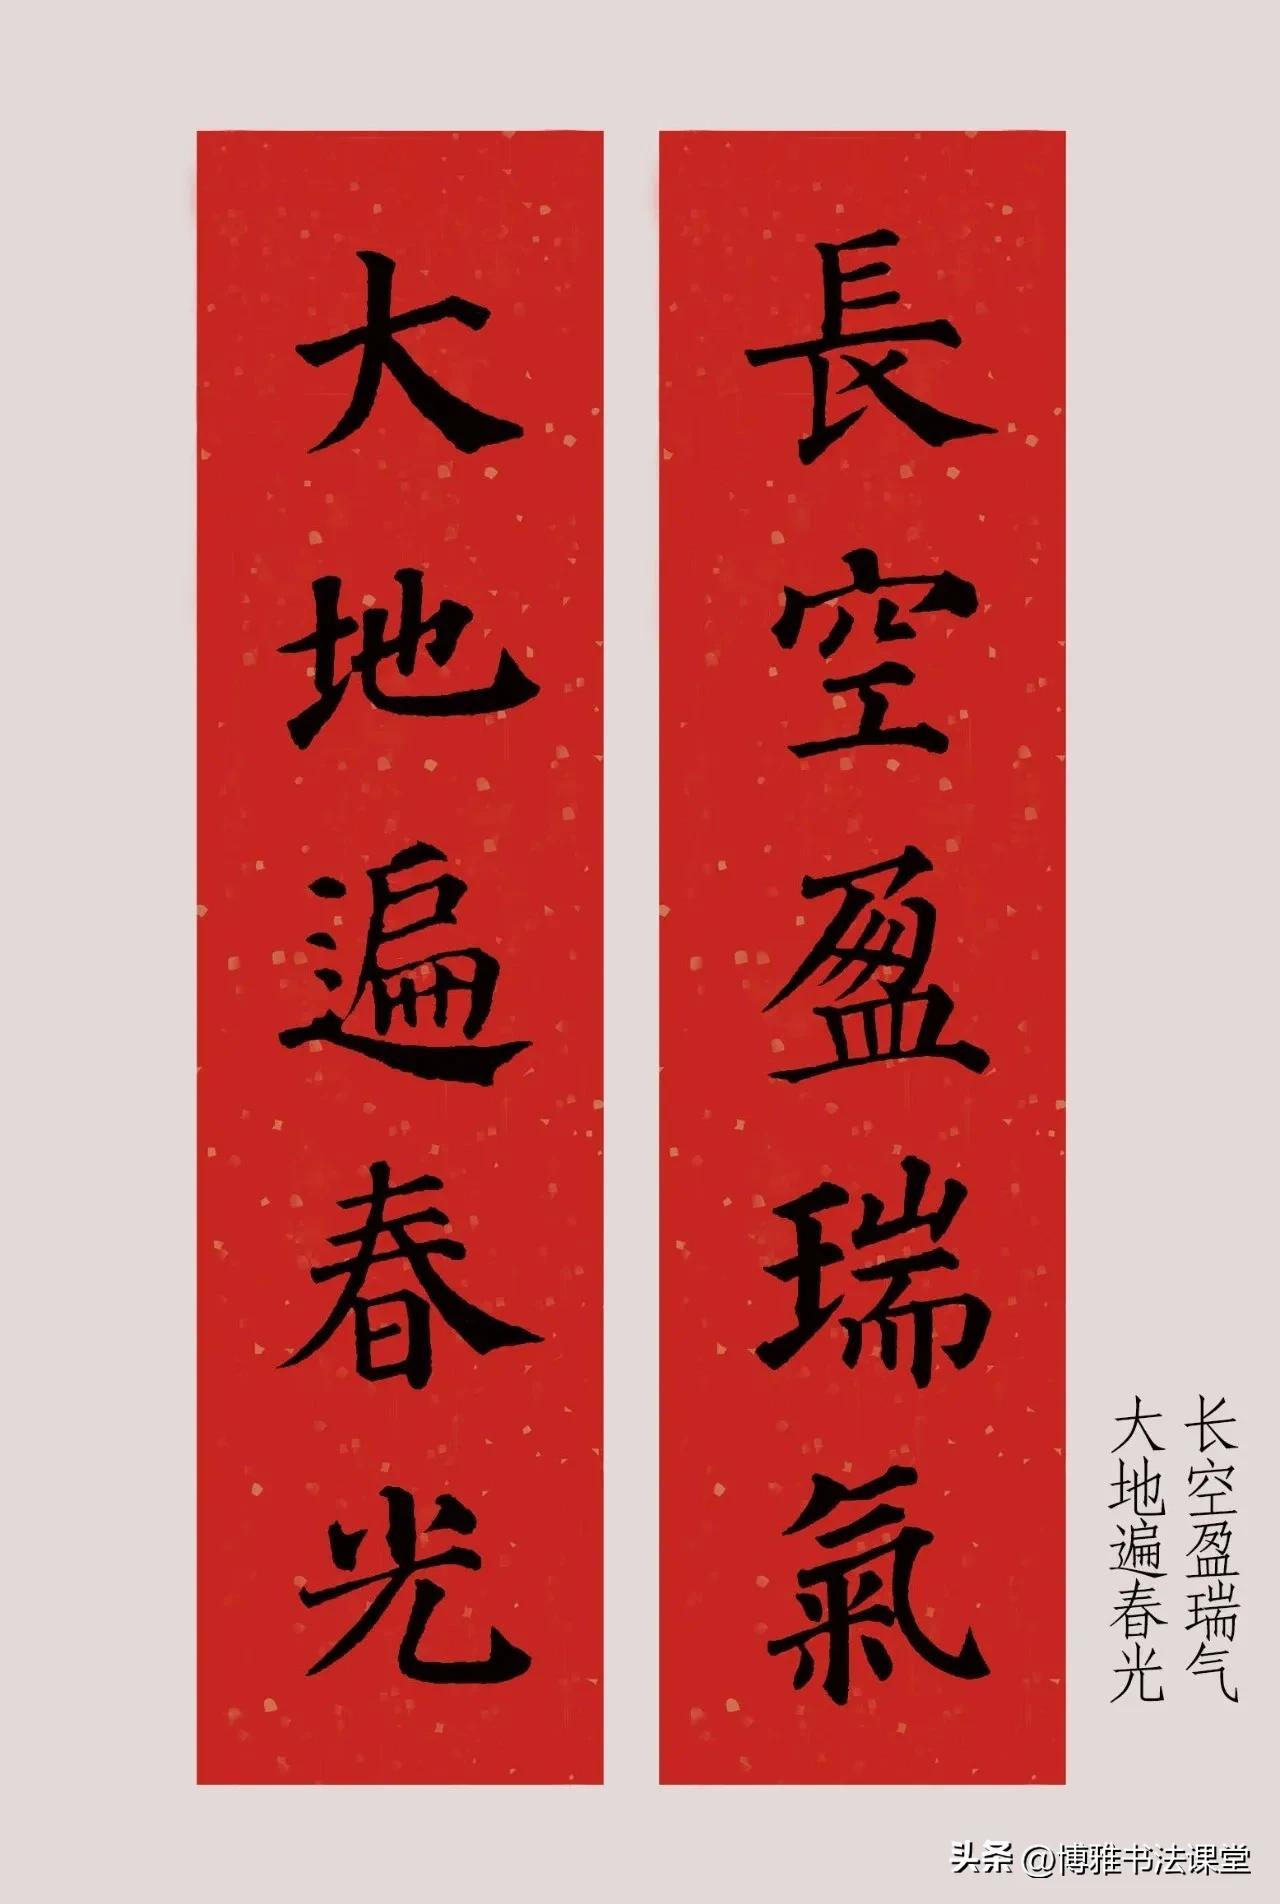 長空盈瑞氣
大地遍春光
长空盈瑞气
大地遍春光
头条 @博雅书法课堂